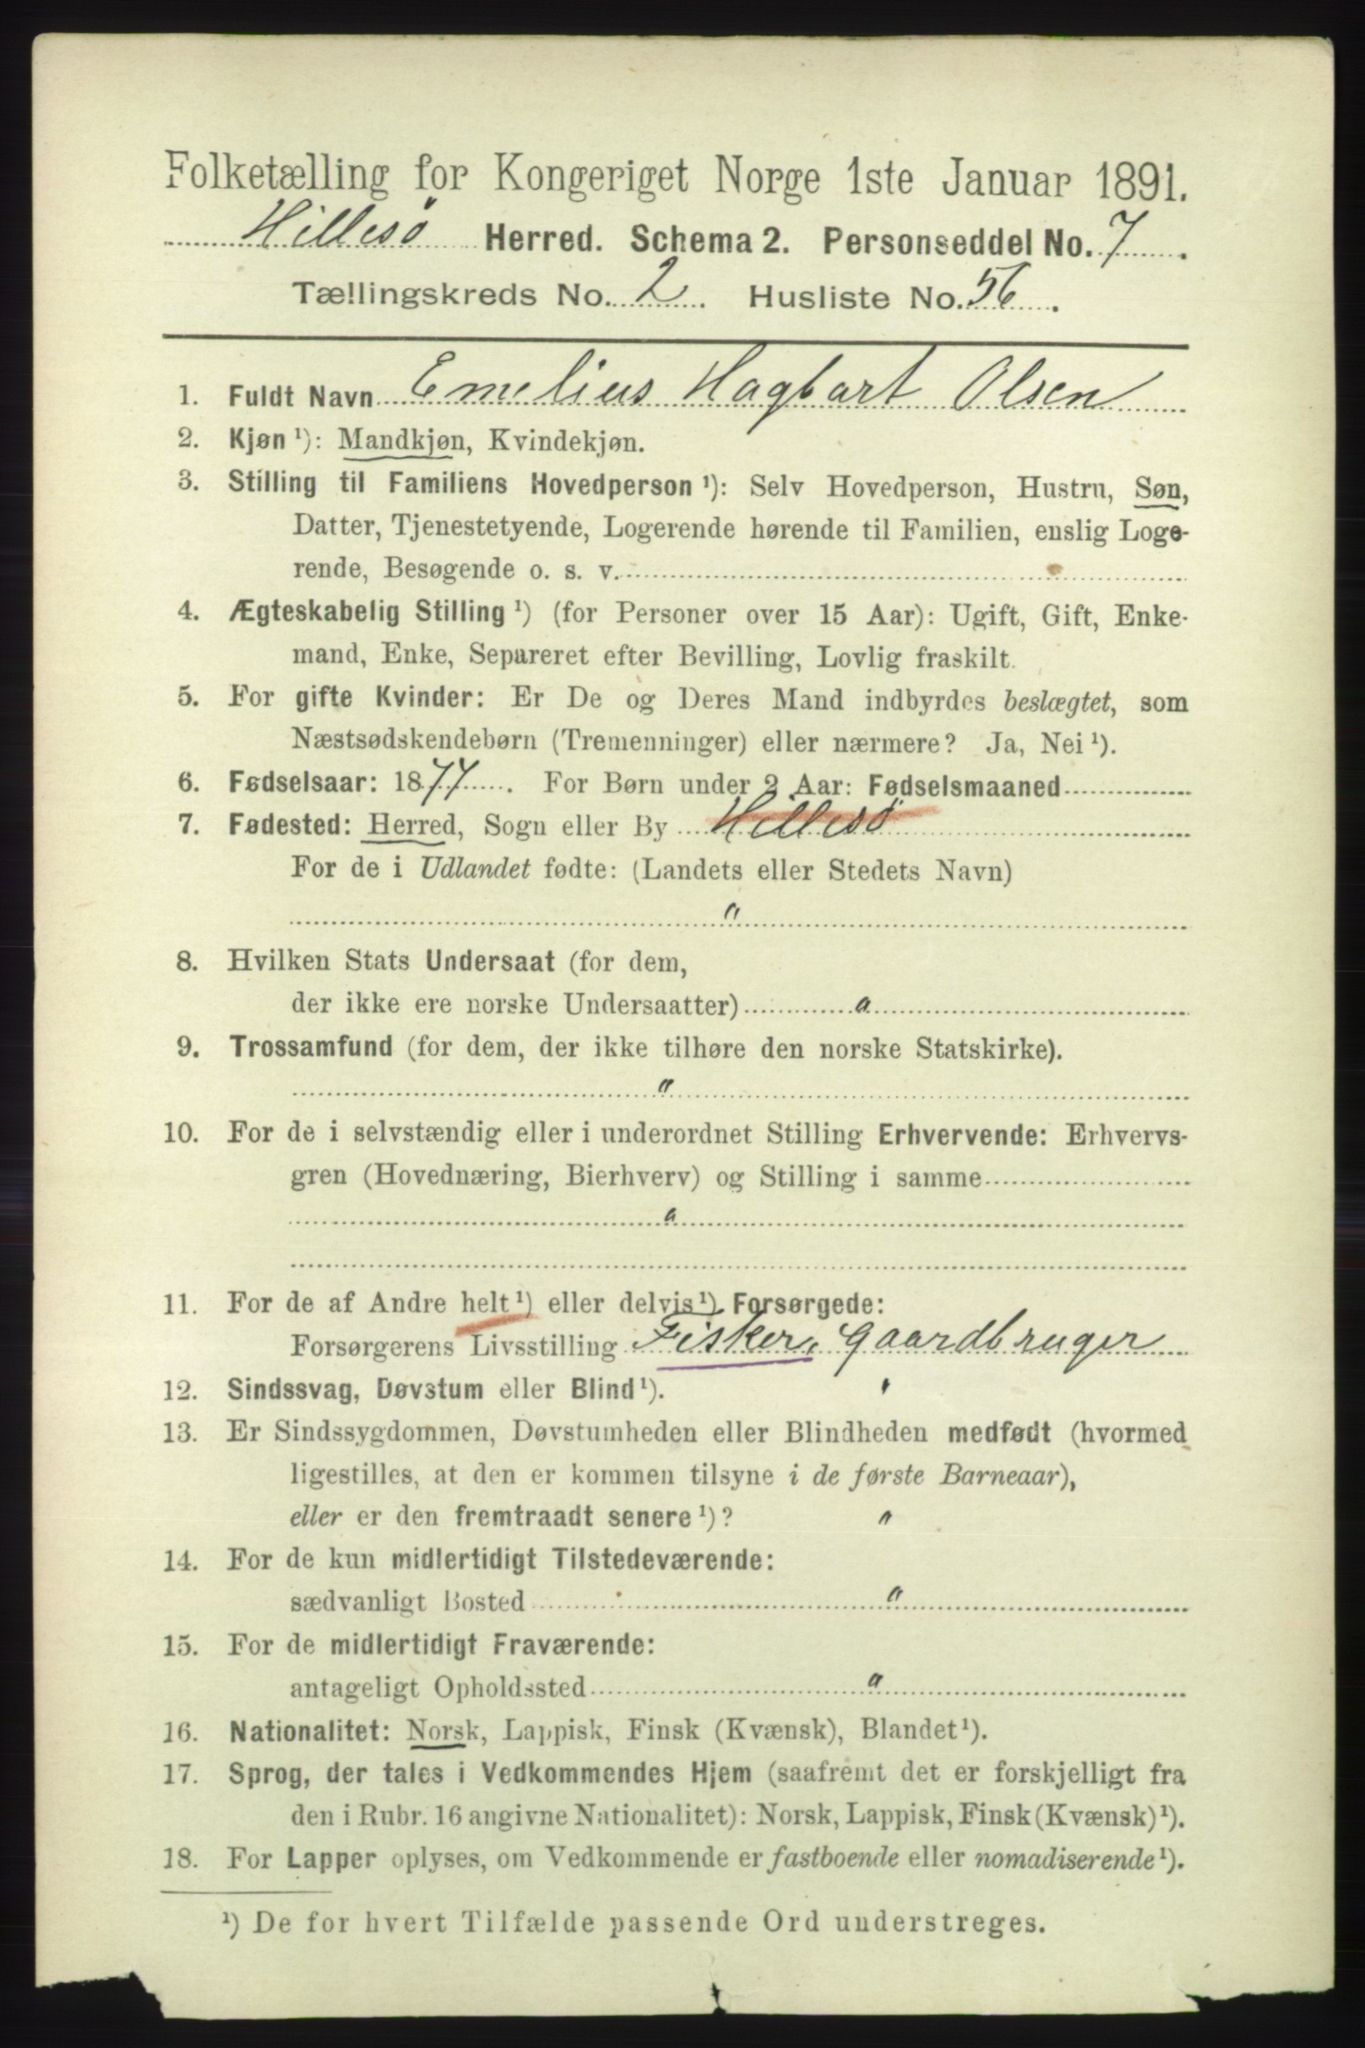 Folketælling for Kongeriget Norge 1ste Januar 1891.
Hillesø Herred. Schema 2. Personseddel No. 7.
Tællingskreds No. 2. Husliste No. 56.
1. Fuldt Navn Emelius Hagbart Olsen
2. Kjøn ¹): Mandkjøn, Kvindekjøn.
3. Stilling til Familiens Hovedperson ¹): Selv Hovedperson, Hustru, Søn,
Datter, Tjenestetyende, Logerende hørende til Familien, enslig Loge-
rende, Besøgende o. s. v.
4. Ægteskabelig Stilling ¹) (for Personer over 15 Aar): Ugift, Gift, Enke-
mand, Enke, Separeret efter Bevilling, Lovlig fraskilt.
5. For gifte Kvinder: Er De og Deres Mand indbyrdes beslægtet, som
Næstsødskendebørn (Tremenninger) eller nærmere? Ja, Nei ¹).
6. Fødselsaar: 1877. For Børn under 2 Aar: Fødselsmaaned
7. Fødested: Herred, Sogn eller By Hillesø
For de i Udlandet fødte: (Landets eller Stedets Navn)
"
8. Hvilken Stats Undersaat (for dem,
der ikke ere norske Undersaatter) "
9. Trossamfund (for dem, der ikke tilhøre den norske Statskirke).
"
10. For de i selvstændig eller i underordnet Stilling Erhvervende: Erhvervs-
gren (Hovednæring, Bierhverv) og Stilling i samme
"
11. For de af Andre helt ¹) eller delvis ¹) Forsørgede:
Forsørgerens Livsstilling Fisker, gaardbruger
12. Sindssvag, Døvstum eller Blind ¹). "
13. Er Sindssygdommen, Døvstumheden eller Blindheden medfødt (hvormed
ligestilles, at den er kommen tilsyne i de første Barneaar),
eller er den fremtraadt senere ¹)? "
14. For de kun midlertidigt Tilstedeværende:
sædvanligt Bosted "
15. For de midlertidigt Fraværende:
antageligt Opholdssted "
16. Nationalitet: Norsk, Lappisk, Finsk (Kvænsk), Blandet ¹).
17. Sprog, der tales i Vedkommendes Hjem (saafremt det er forskjelligt fra
den i Rubr. 16 angivne Nationalitet): Norsk, Lappisk, Finsk (Kvænsk) ¹).
18. For Lapper oplyses, om Vedkommende er fastboende eller nomadiserende ¹).
¹) De for hvert Tilfælde passende Ord understreges.